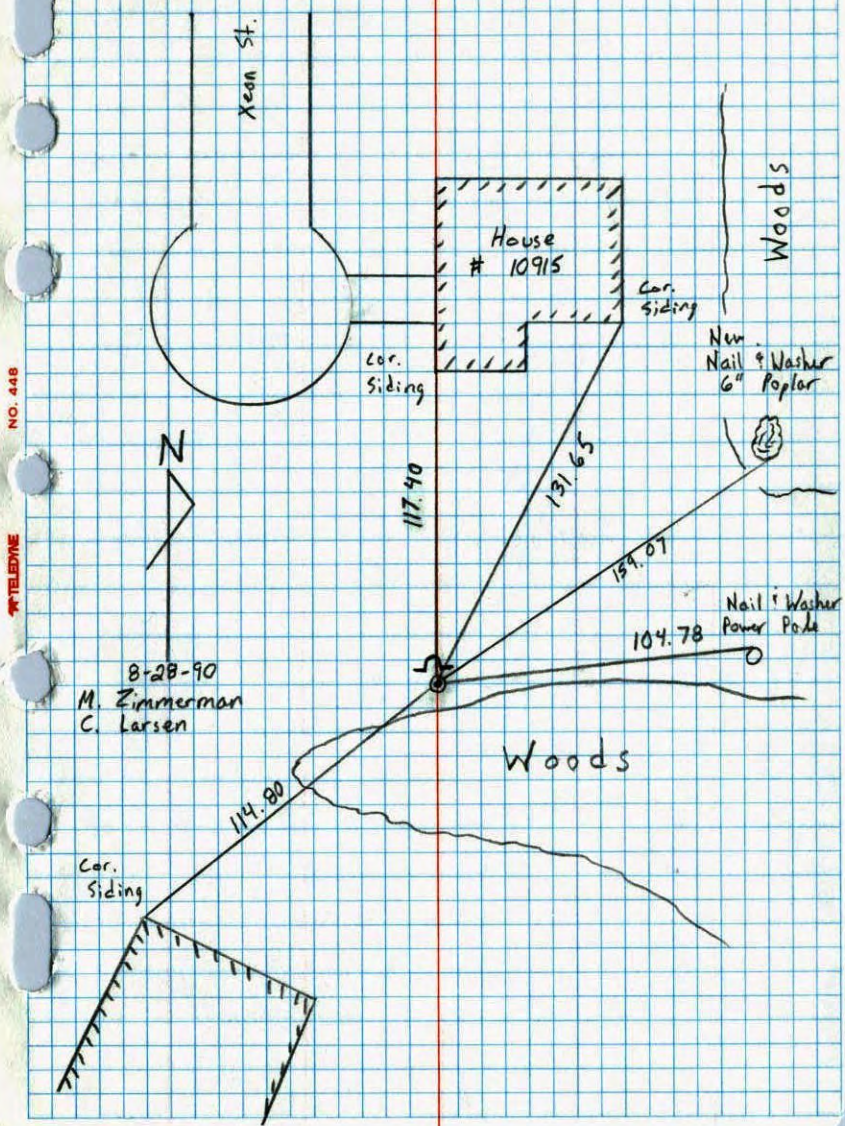 Xeon St.
Woods
House
# 10915
Cor.
Siding
Cor.
Siding
New
Nail & Washer
6" Poplar
NO. 448
N
117.40
131.65
159.07
TELEDYNE
Nail & Washer
Power Pole
104.78
2
8-28-90
M. Zimmerman
C. Larsen
Woods
114.80
Cor.
Siding